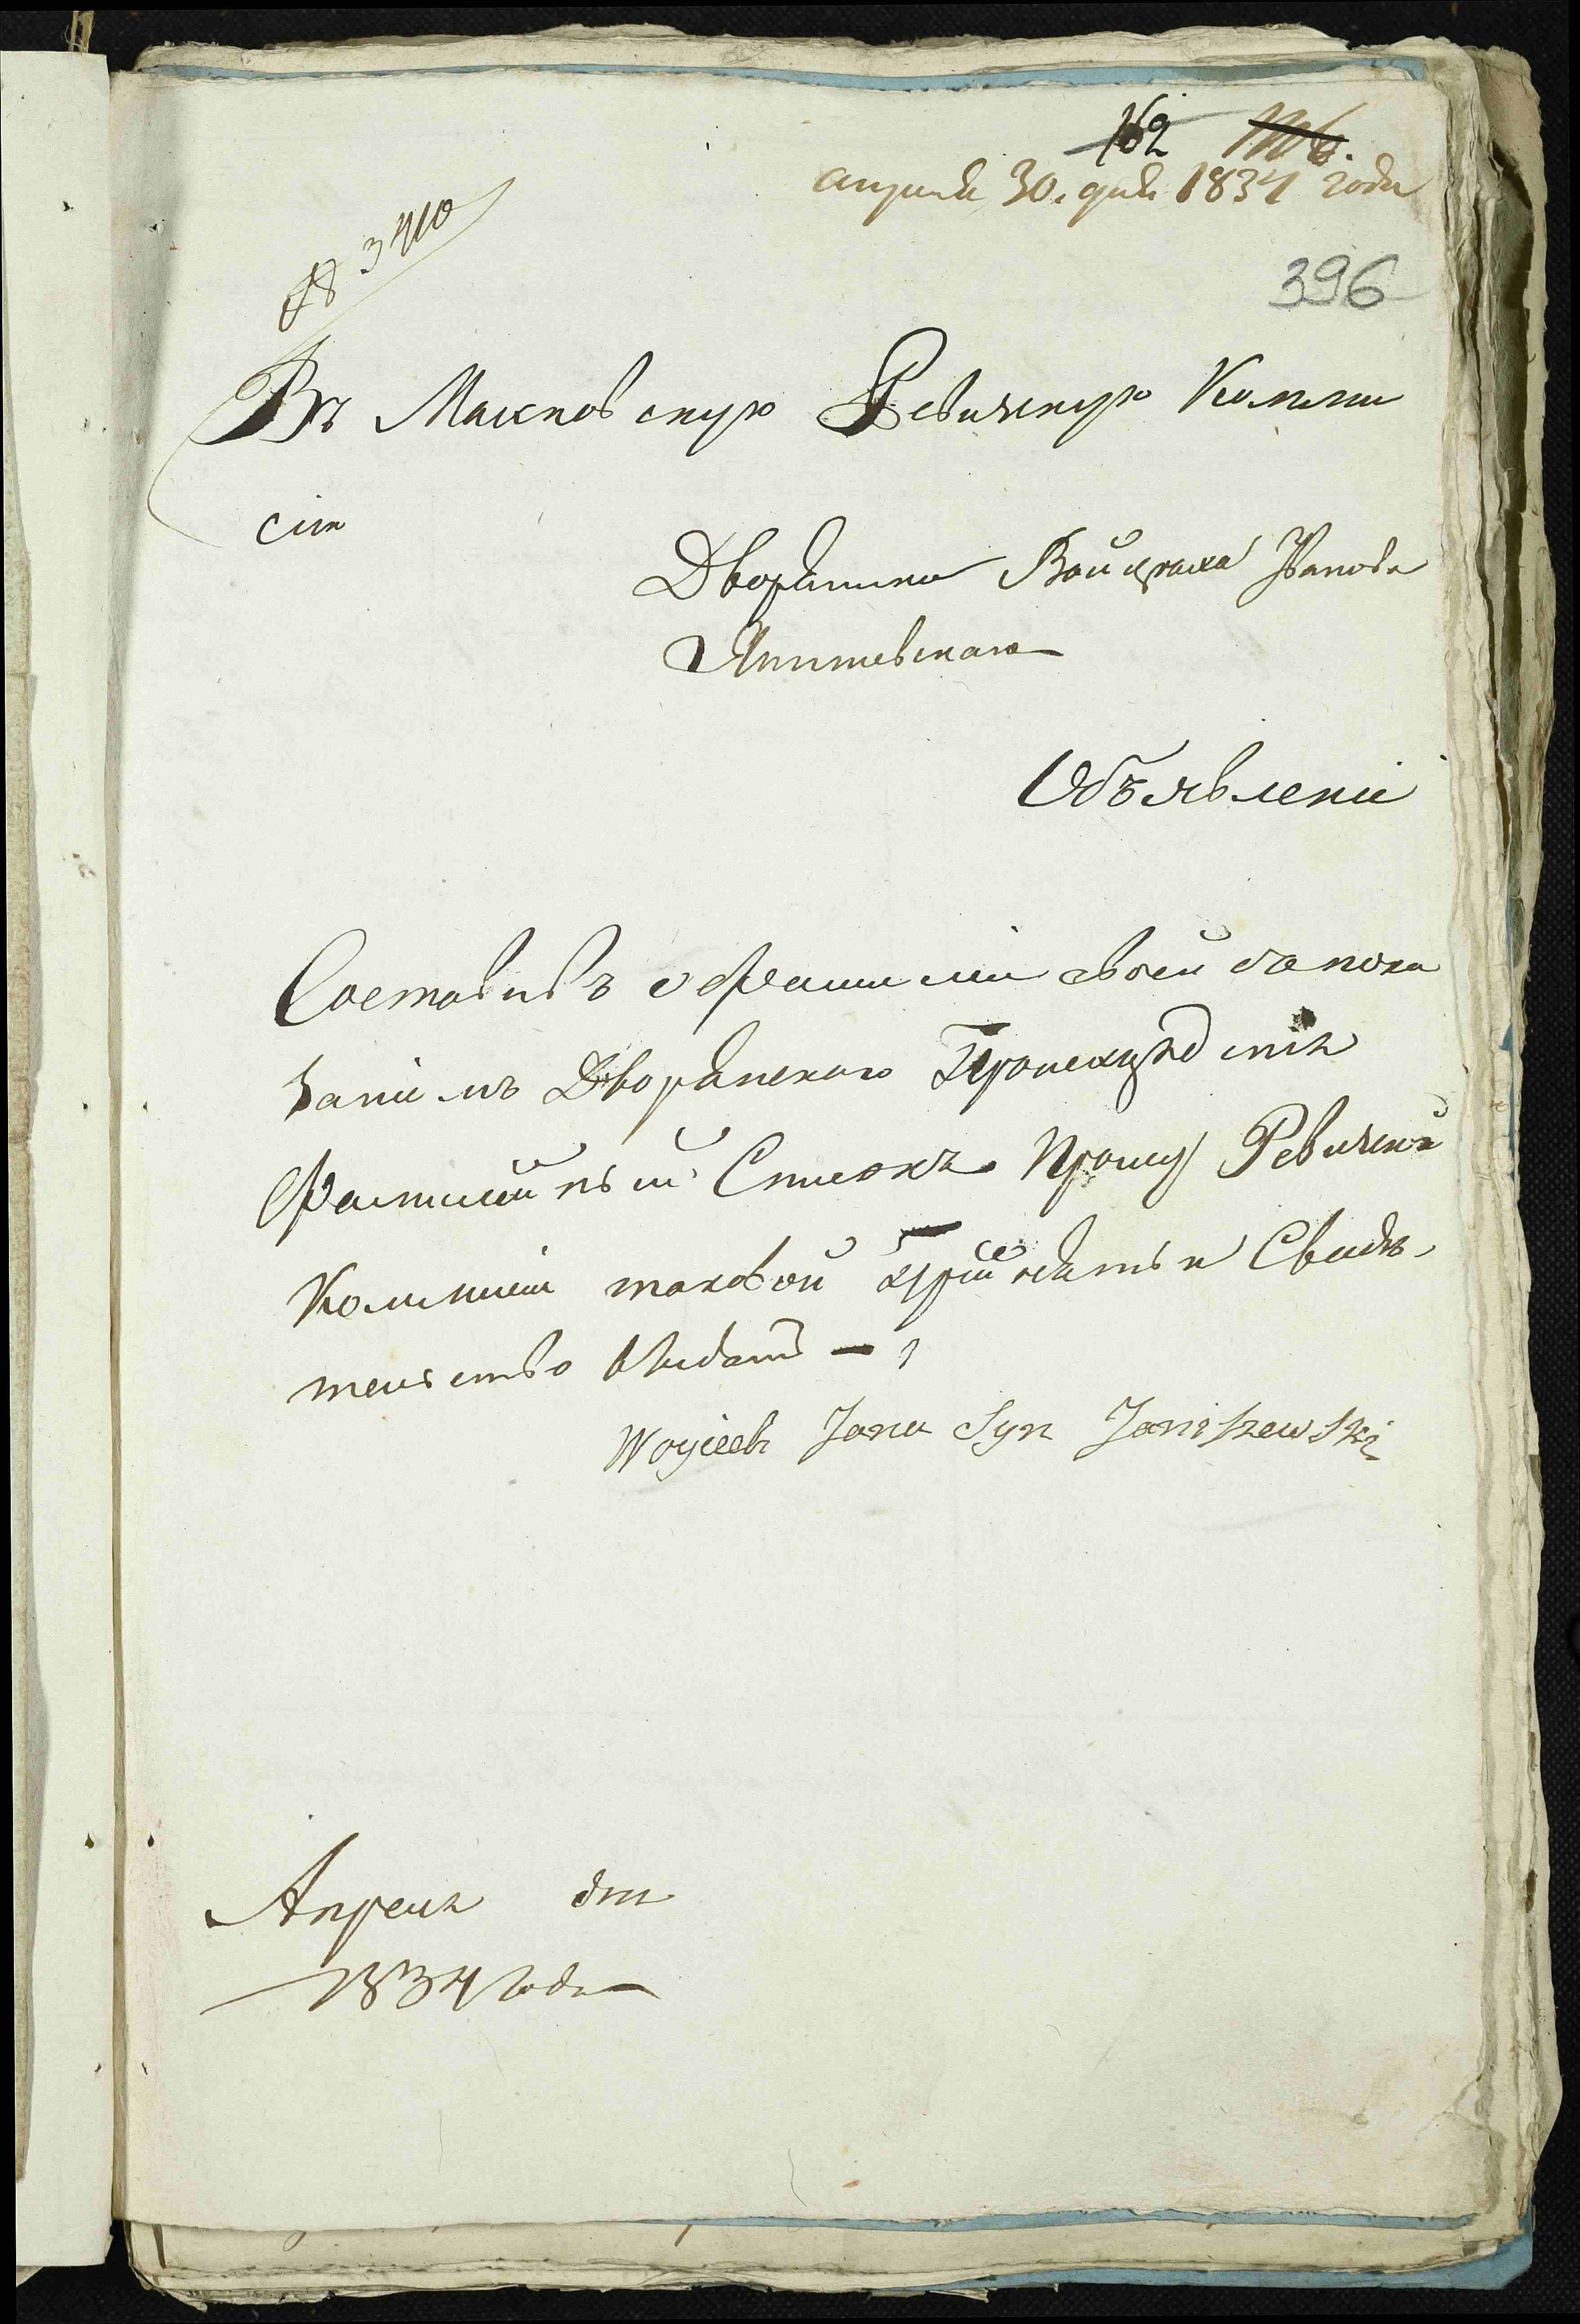 162
апреля 30. дня 1834 года
№ 3410
396
Въ Минскую Ревизскую Комми
сію
Дворянина Войцѣха Иванова
Янишевскаго
Объявленіе
Составивъ о Фамиліи своей съ пока
заніемъ Дворянскаго Происхожденія
Фамилійный Списокъ Прошу Ревизской
Коммисіи таковой Принять и Свидѣ-
тельство выдать —
Woyciech Jana Syn Janiszewski
Апреля дня
1834 года